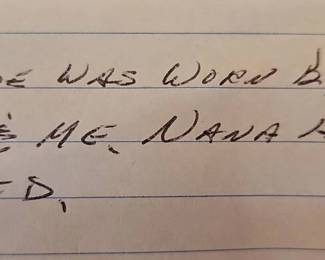 WAS WORN
ME. NANA
ED.